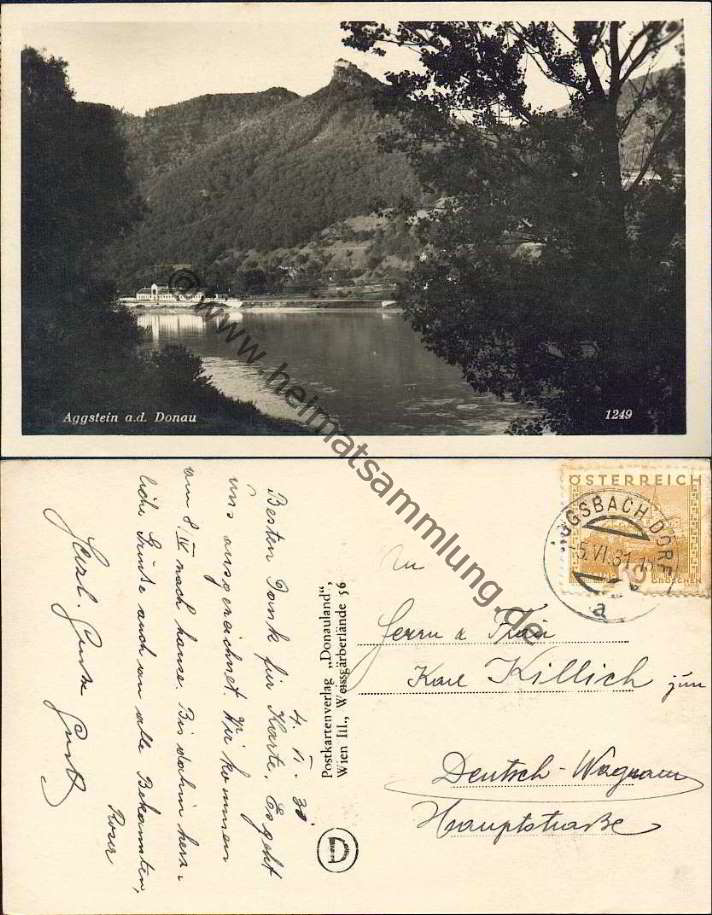 Aggstein a.d. Donau
1249
© www.heimatsammlung.de
ÖSTERREICH
GROSCHEN
AGGSBACH-DORF
5.VI.31
a
Postkartenverlag „Donauland",
Wien III., Weissgärberlände 56
D
4. VI. 30
Besten Dank für Karte. Es geht
uns ausgezeichnet. Wir kommen
am 8. IV nach hause. Bis dahin herz-
liche Grüße auch an alle Bekannten,
Herzl.
An
Herrn u Frau
Karl Killich zum
Deutsch-Wagram
Hauptstraße